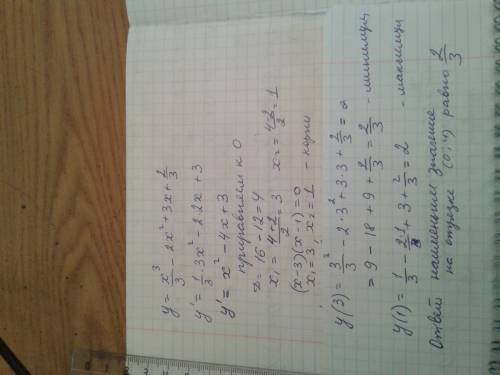 y = x³/3 - 2x² + 3x + 2/3
y' = 1/3 · 3x² - 2·2x + 3
y' = x² - 4x + 3
приравняем к 0
D = 16 - 12 = 4
x₁ = (4+2)/2 = 3 x₂ = (4-2)/2 = 1
(x-3)(x-1) = 0
x₁ = 3, x₂ = 1 - корни
y(3) = 3³/3 - 2·3² + 3·3 + 2/3 =
= 9 - 18 + 9 + 2/3 = 2/3 - минимум
y(1) = 1/3 - 2·1 + 3 + 2/3 = 2 - максимум
Ответ наименьшим значение
на отрезке (0;4) равно 2/3